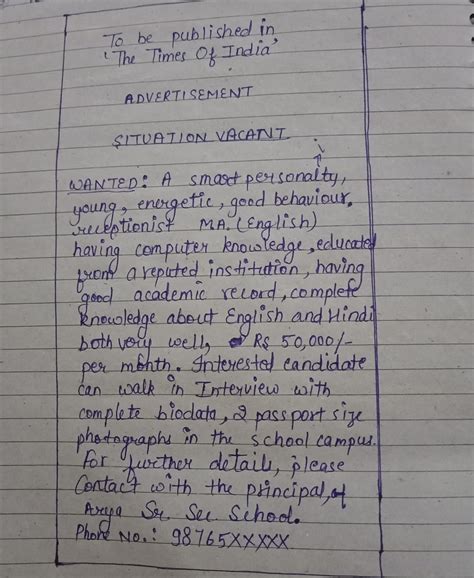 To be published in
'The Times Of India'
ADVERTISEMENT
SITUATION VACANT
WANTED: A smart personalty, i
young, energetic, good behaviour,
receptionist M.A. (English)
having computer knowledge, educated
from a reputed institution, having
good academic record, complete
knowledge about English and Hindi
both very well, Rs 50,000/-
per month. Interested candidate
can walk in Interview with
complete biodata, 2 passport size
photographs in the school campus.
For further details, please
Contact with the principal, of
Arya Sr. Sec School.
Phone No.: 98765XXXXX